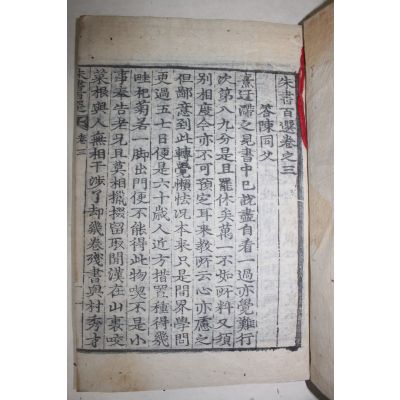 朱書百選卷之三
答陳同父
熹迂滯之見書中已說盡自看一過亦覺難行
次第八九分是且罷休矣萬一不如所料又須
別相度今亦不可預定耳來敎所云心亦慮之
但鄙意到此轉覺懶怯況本來只是閒界學問
更過五七日便是六十歲人近方措置種得幾
畦杞菊若一脚出門便不能得此物喫不是小
事奉告老兄且莫相攛掇留取閒漢在山裏咬
菜根與人無相干涉了却幾卷殘書與村秀才
朱書百選 卷三